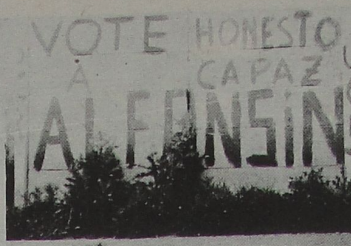 VOTE HONESTO
A CAPAZ
ALFONSIN